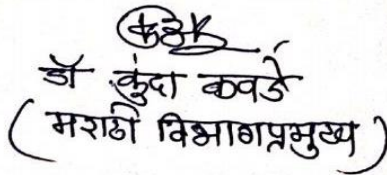 डॉ कुंदा कवडे
(मराठी विभागप्रमुख)